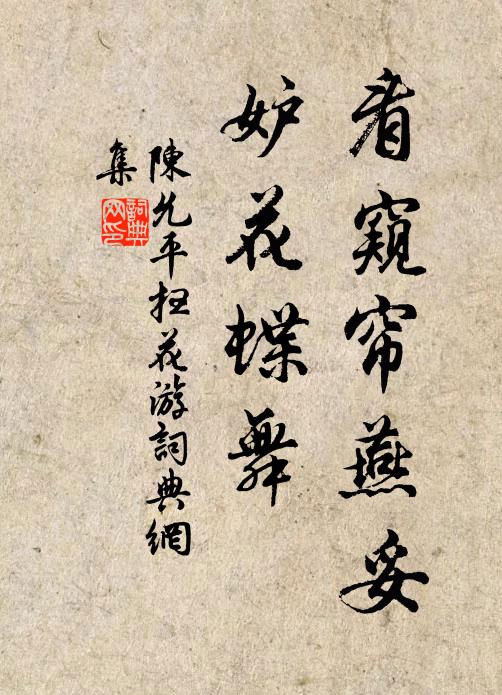 看窺帘燕妥
妒花蝶舞
陳允平扫花游詞典網
集
詞典
网印